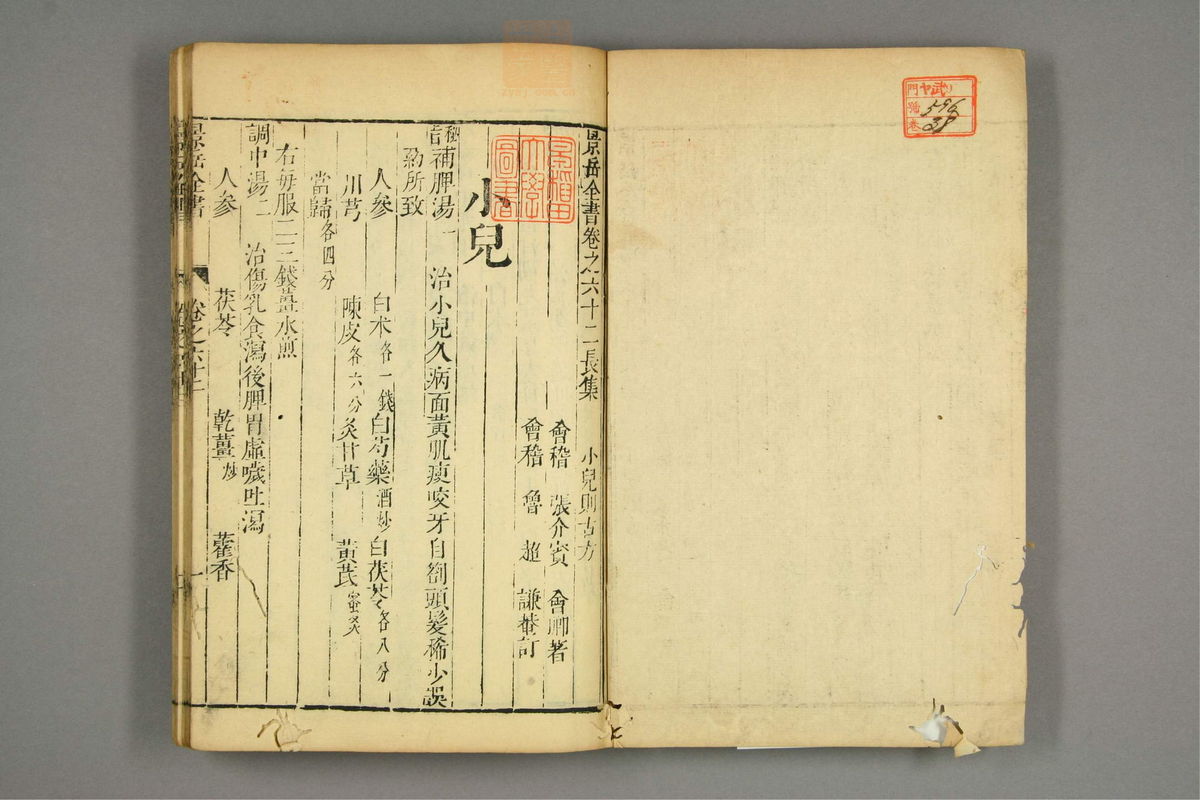 景岳全書卷之六十二長集　小兒則古方
會稽　張介賓　會卿著
會稽　魯超　謙菴訂
小兒
秘旨補脾湯一　治小兒久病面黃肌瘦咬牙目劄頭髮稀少誤
藥所致
人參　白朮各一錢白芍藥酒炒白茯苓各八分
川芎　陳皮各六分炙甘草　黃芪蜜炙
當歸各四分
右每服二三錢薑水煎
調中湯二　治傷乳食瀉後脾胃虛噦吐瀉
人參　茯苓　乾薑炒　藿香
景岳全書　卷之六十二　一
早稻田
大學
圖書
門
號
卷
596
38